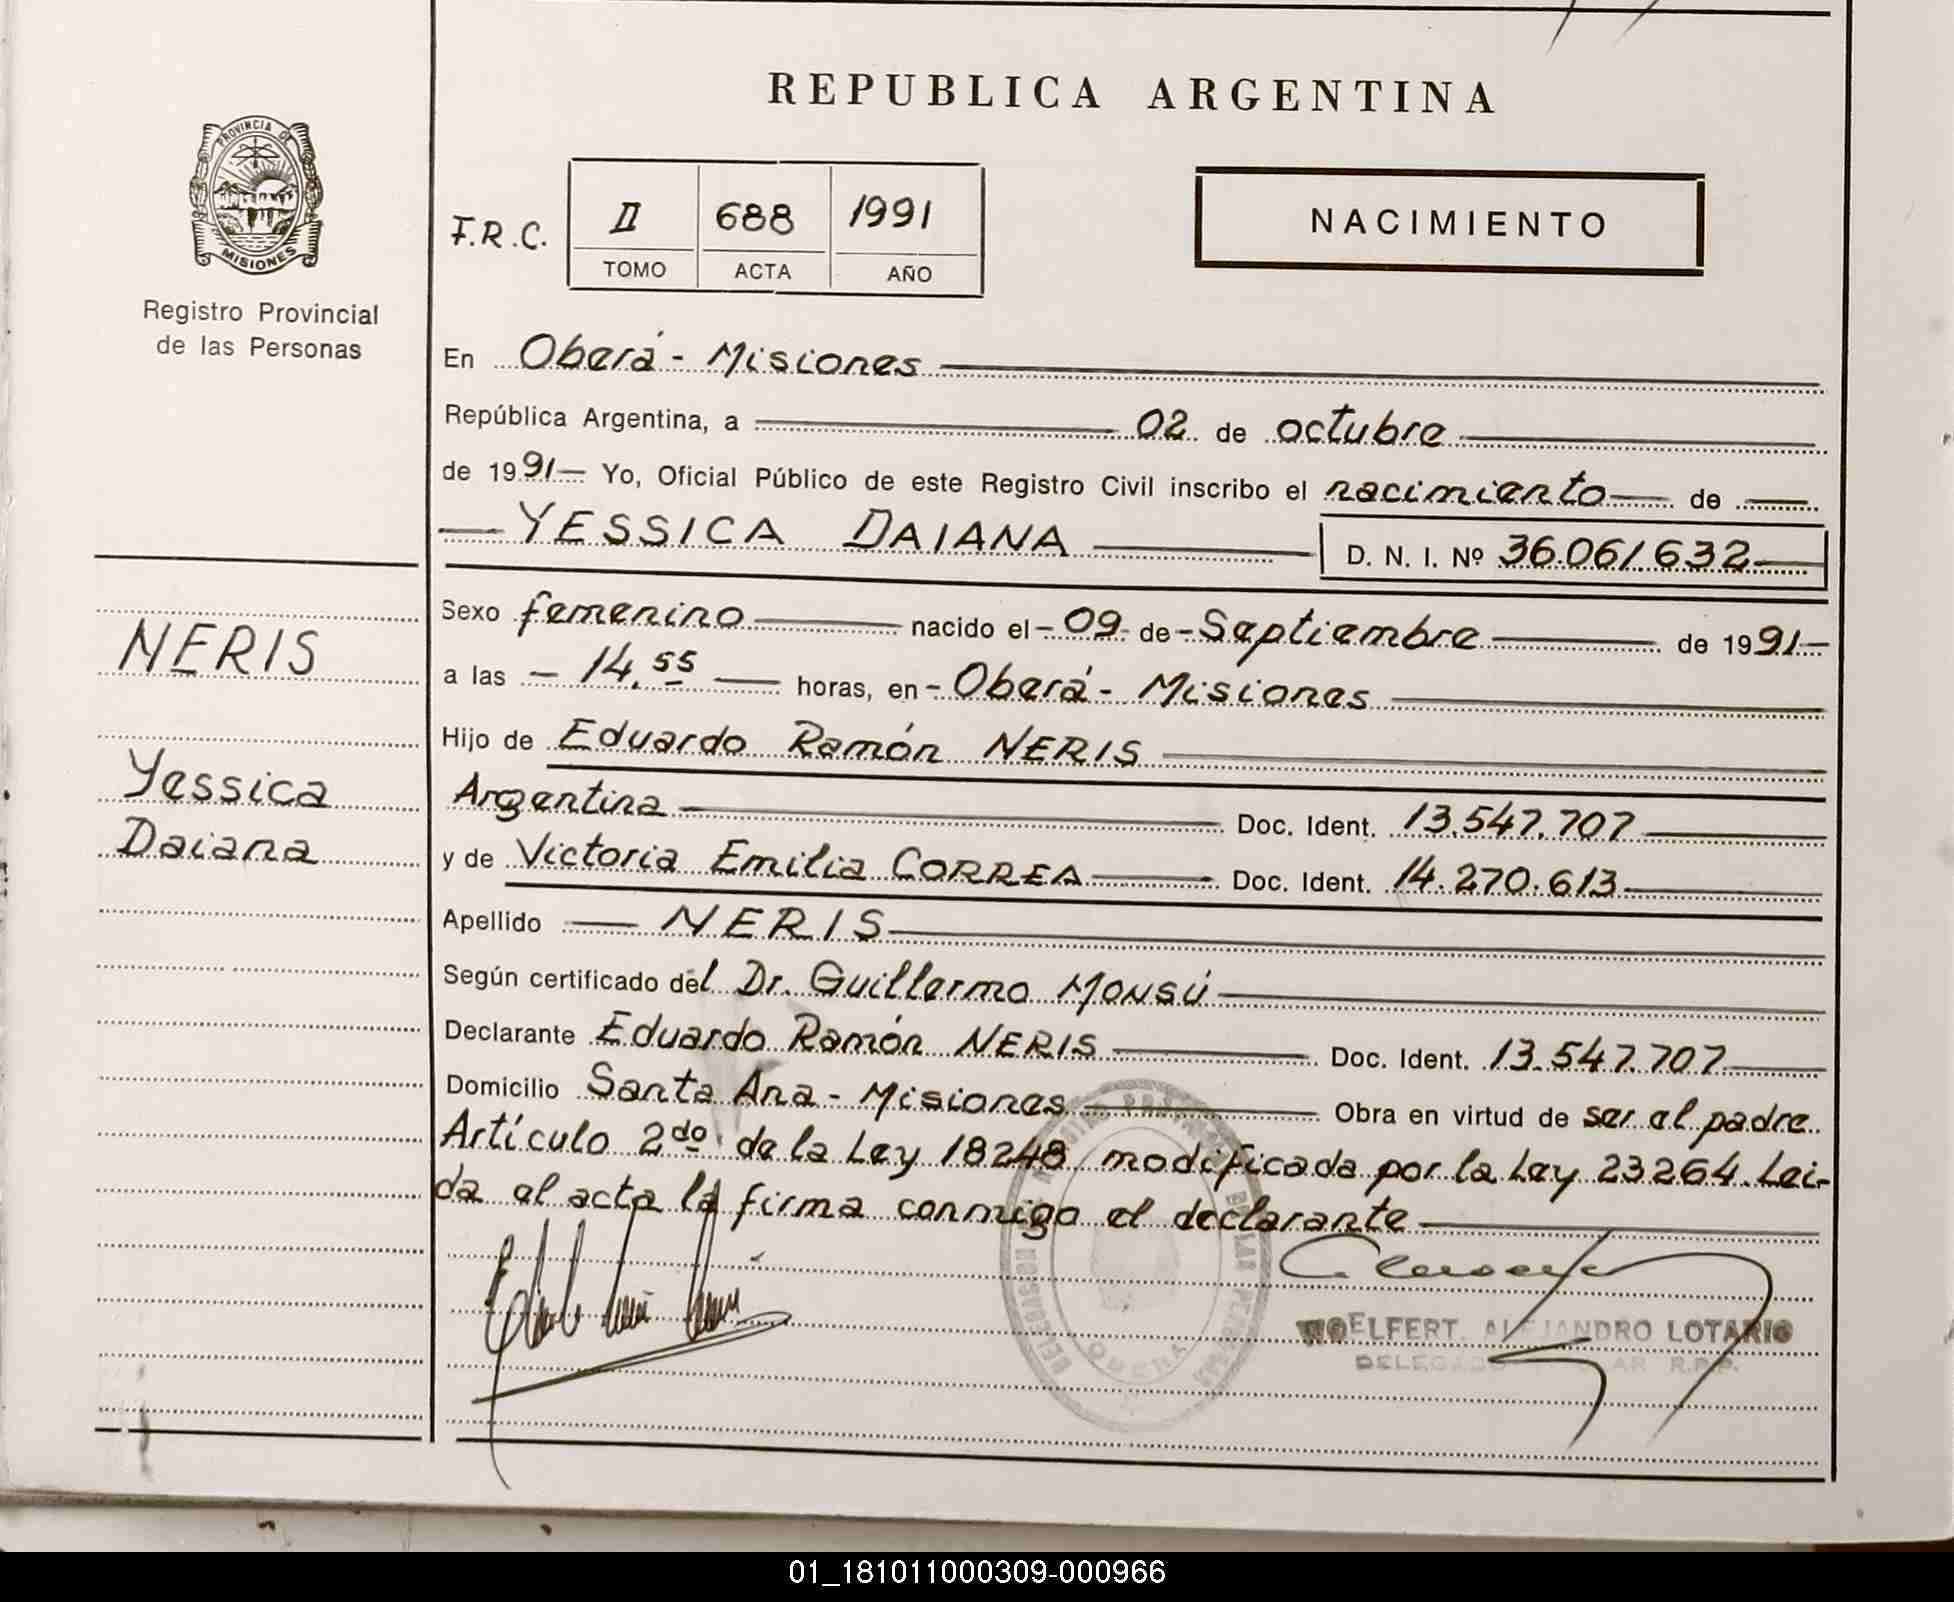 REPUBLICA ARGENTINA
PROVINCIA DE
MISIONES
Registro Provincial
de las Personas
F.R.C.
II 688 1991
TOMO ACTA AÑO
NACIMIENTO
En Oberá - Misiones
República Argentina, a 02 de octubre
de 1991 Yo, Oficial Público de este Registro Civil inscribo el nacimiento de
YESSICA DAIANA D. N. I. Nº 36.061.632
Sexo femenino nacido el 09 de Septiembre de 1991
a las 14,55 horas, en Oberá - Misiones
Hijo de Eduardo Ramón NERIS
Argentina Doc. Ident. 13.547.707
y de Victoria Emilia CORREA Doc. Ident. 14.270.613
Apellido NERIS
Según certificado del Dr. Guillermo Monsú
Declarante Eduardo Ramón NERIS Doc. Ident. 13.547.707
Domicilio Santa Ana - Misiones Obra en virtud de ser el padre.
Artículo 2do de la Ley 18248 modificada por la Ley 23264. Lei-
da el acta la firma conmigo el declarante
NERIS
Yessica
Daiana
OBERA
ELFERT, ALEJANDRO LOTARIO
DELEGADO R.P.P.
01_181011000309-000966